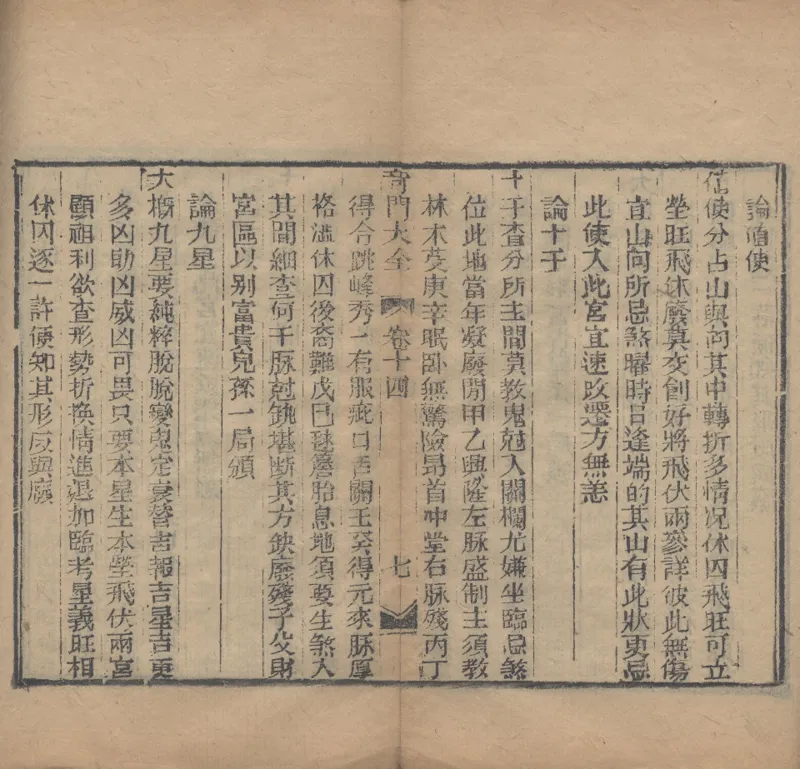 論值使
值使分占山與向其中轉折多情况休囚飛旺可立
塋旺飛休廢莫交創好將飛伏兩參詳彼此無傷
宜山向所忌煞曜時日逢端的其山有此狀更忌
此使入此宮宜速改遷方無恙
論十干
十干查分所主間莫教鬼尅入關欄尤嫌坐臨忌煞
位此地當年凝廢閒甲乙興隆左脉盛制主須教
林木蔓庚辛眠卧無驚險昻首冲堂右脉殘丙丁
奇門大全 卷十四 七
得合跳峰秀一有服疵口舌關壬癸得元來脉厚
格濫休囚後裔難戊己毬簷胎息地須要生煞入
其間細查何干脉尅銃堪斷其方鈌廢殘子父財
宮區以别富貴兒孫一局頒
論九星
大槪九星要純粹脫脫變鬼定衰替吉報吉星吉更
多凶助凶威凶可畏只要本星生本塋飛伏兩宮
顧祖利欲查形勢折換情進退加臨考星義旺相
休囚逐一許便知其形反與廢